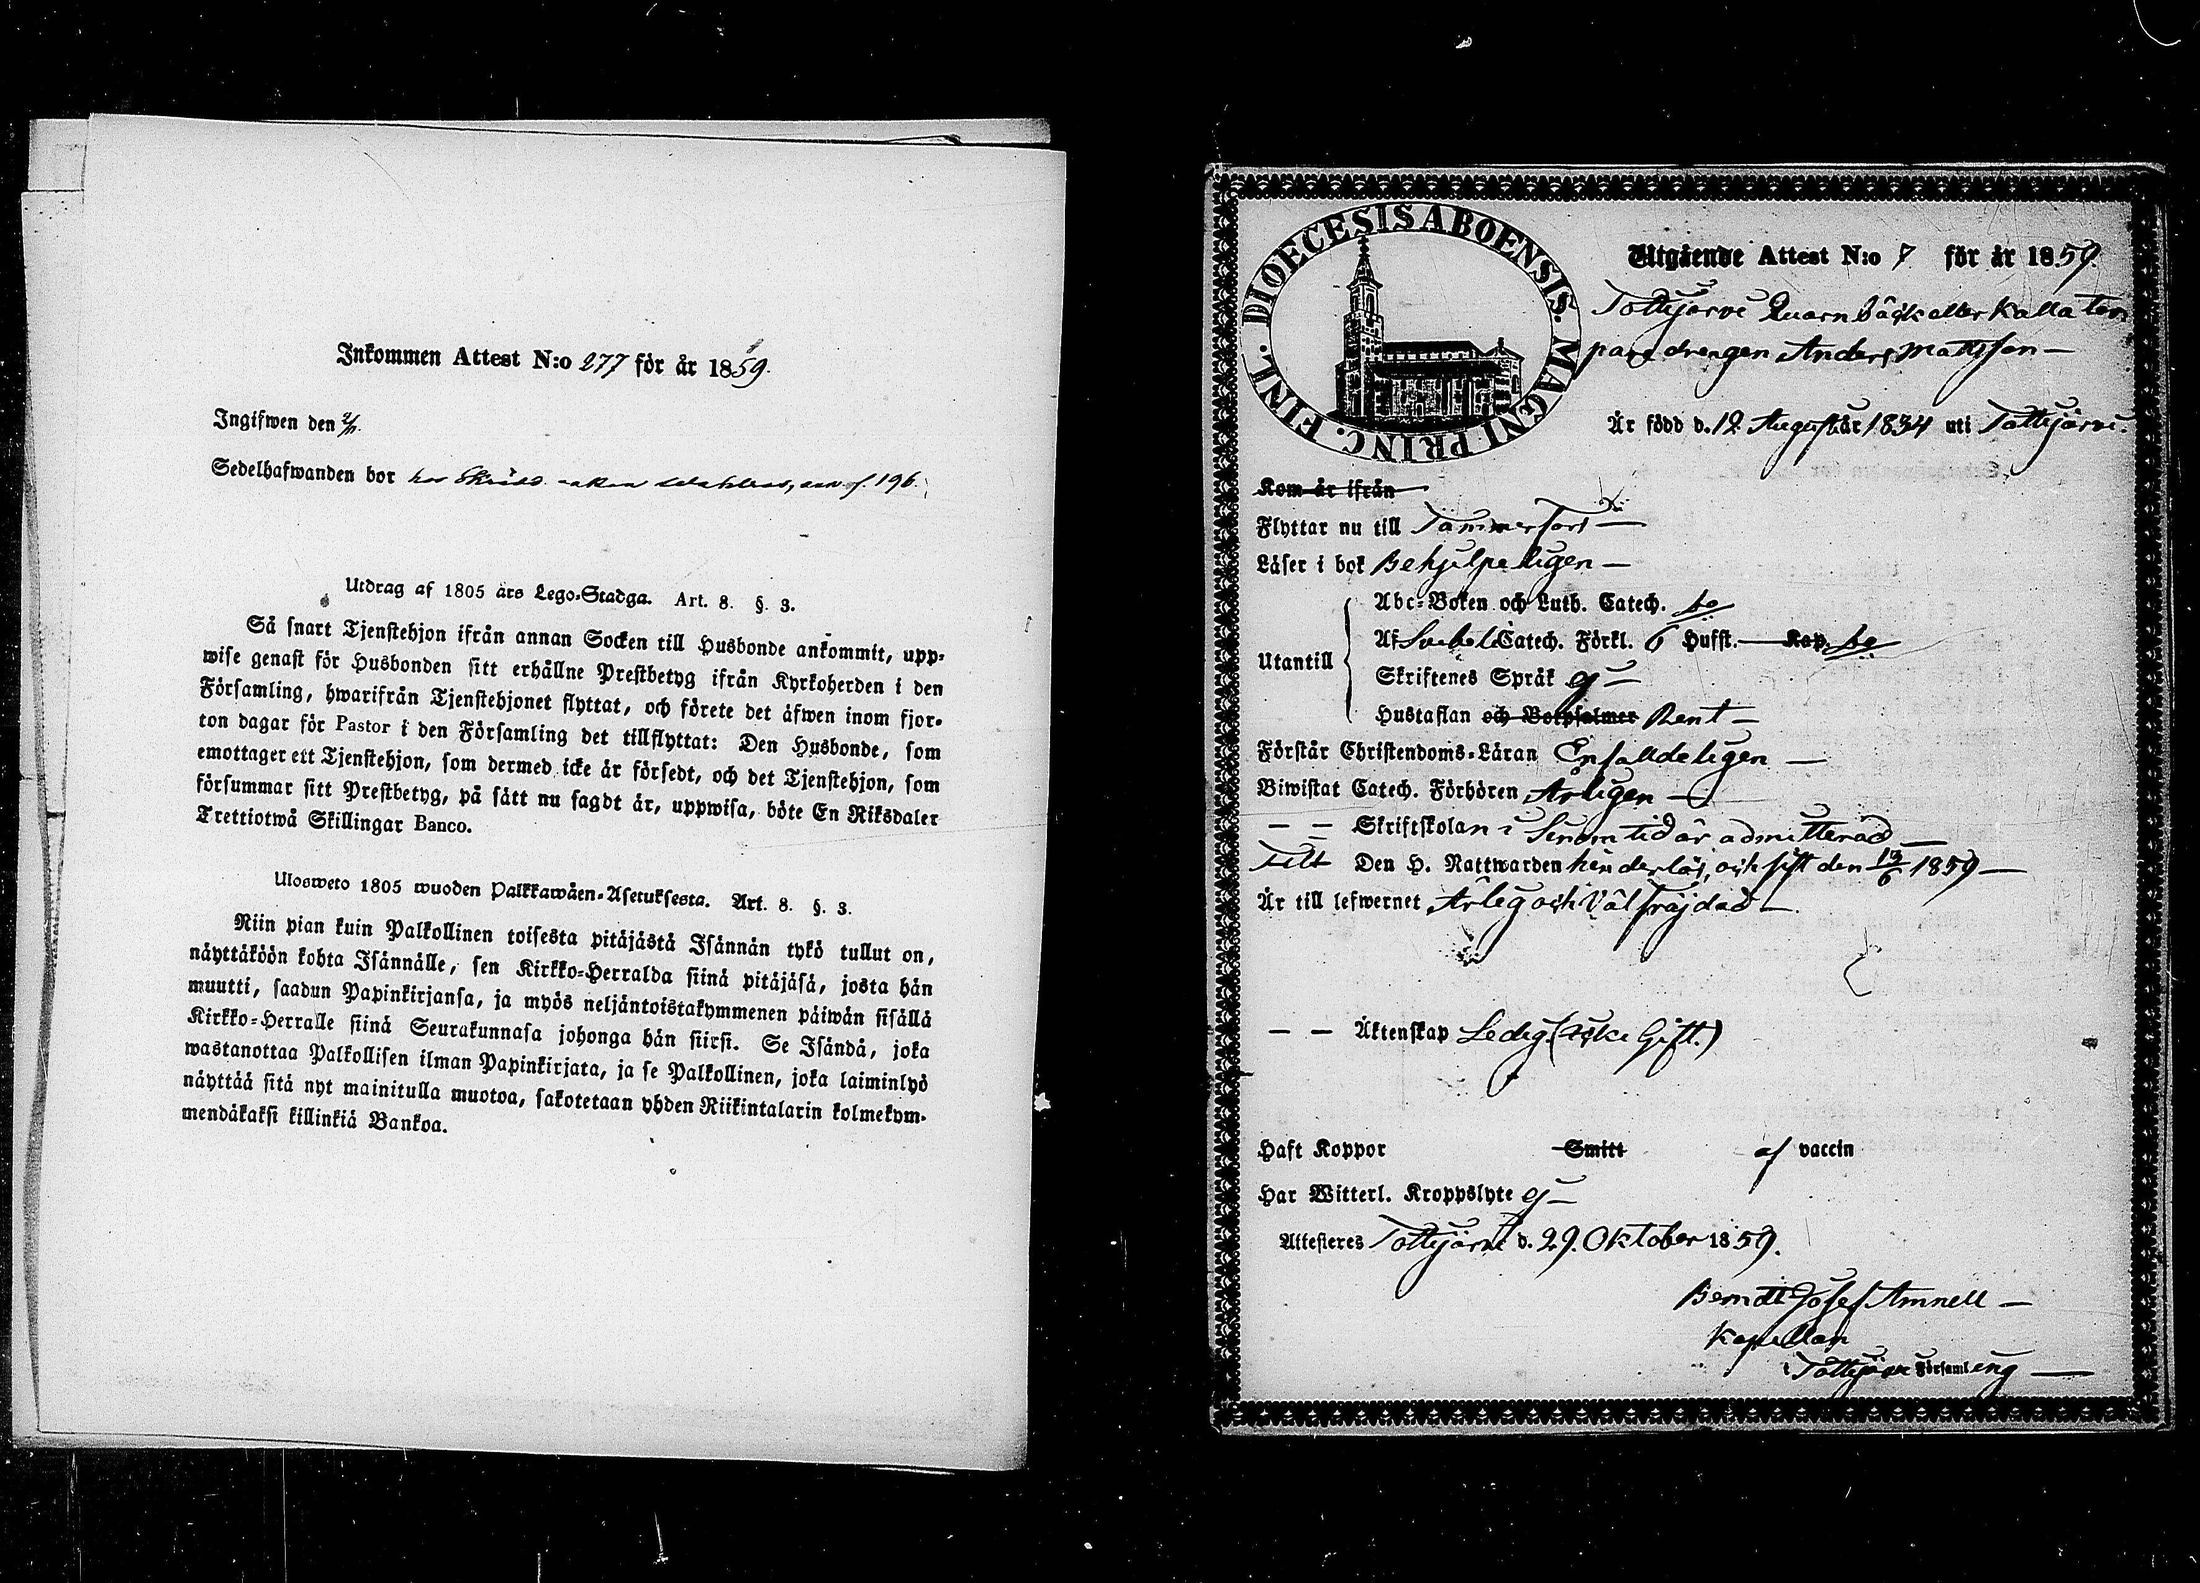 Inkommen Attest N:o 277 för år 1859.
Ingifwen den
Sedelhafwanden bor hos f. 196.
Utdrag af 1805 års Lego-Stadga. Art. 8. §. 3.
Så snart Tjenstehjon ifrån annan Socken till Husbonde ankommit, upp-
wise genast för Husbonden sitt erhållne Prestbetyg ifrån Kyrkoherden i den
Församling, hwarifrån Tjenstehjonet flyttat, och förete det äfwen inom fjor-
ton dagar för Pastor i den Församling det tillflyttat: Den Husbonde, som
emottager ett Tjenstehjon, som dermed icke är försedt, och det Tjenstehjon, som
försummar sitt Prestbetyg, på sätt nu sagdt är, uppwisa, böte En Riksdaler
Trettiotwå Skillingar Banco.
Ulosweto 1805 wuoden Palkkawäen-Asetuksesta. Art. 8. §. 3.
Niin pian kuin Palkollinen toisesta pitäjästä Isännän tykö tullut on,
näyttäköön kohta Isännälle, sen Kirkko-Herralda siinä pitäjäsä, josta hän
muutti, saadun Papinkirjansa, ja myös neljäntoistakymmenen päiwän sisällä
Kirkko-Herralle siinä Seurakunnasa johonga hän siirsi. Se Isändä, joka
wastanottaa Palkollisen ilman Papinkirjata, ja se Palkollinen, joka laiminlyö
näyttää sitä nyt mainitulla muotoa, sakotetaan yhden Riikintalarin kolmekym-
mendäkaksi killinkiä Bankoa.
DIOECESIS ABOENSIS. MAGNI PRINC. FINL.
Utgående Attest N:o 7 för år 1859.
Tottijärvi Quarnbäck eller Kalla
drengen Anders Mattsson —
Är född d. 12 Augusti år 1834 uti Tottijärvi.
Kom år ifrån
Flyttar nu till Tammerfors —
Läser i bok Behjelpeligen —
Utantill
Abc-Boken och Luth. Catech.
Af Svebeli Catech. Förkl. 6 Hufst. — Kap.
Skriftenes Språk ej —
Hustaflan och Botpsalmer Rent —
Förstår Christendoms-Läran Enfalldeligen —
Biwistat Catech. Förhören Årligen —
— — Skriftskolan i Sinom tid är admitterad —
Till Den H. Nattwarden hinderlös, och sist den 19/6 1859 —
Är till lefwernet Ärlig och Väl frajdad —
— — Äktenskap Ledig. (icke Gift.)
Haft Koppor Smitt af vaccin
Har Witterl. Kroppslyte ej —
Attesteres Tottijärvi d. 29. Oktober 1859.
Berndt Josef Amnell —
Kapellan
i Tottijärvi Församling —